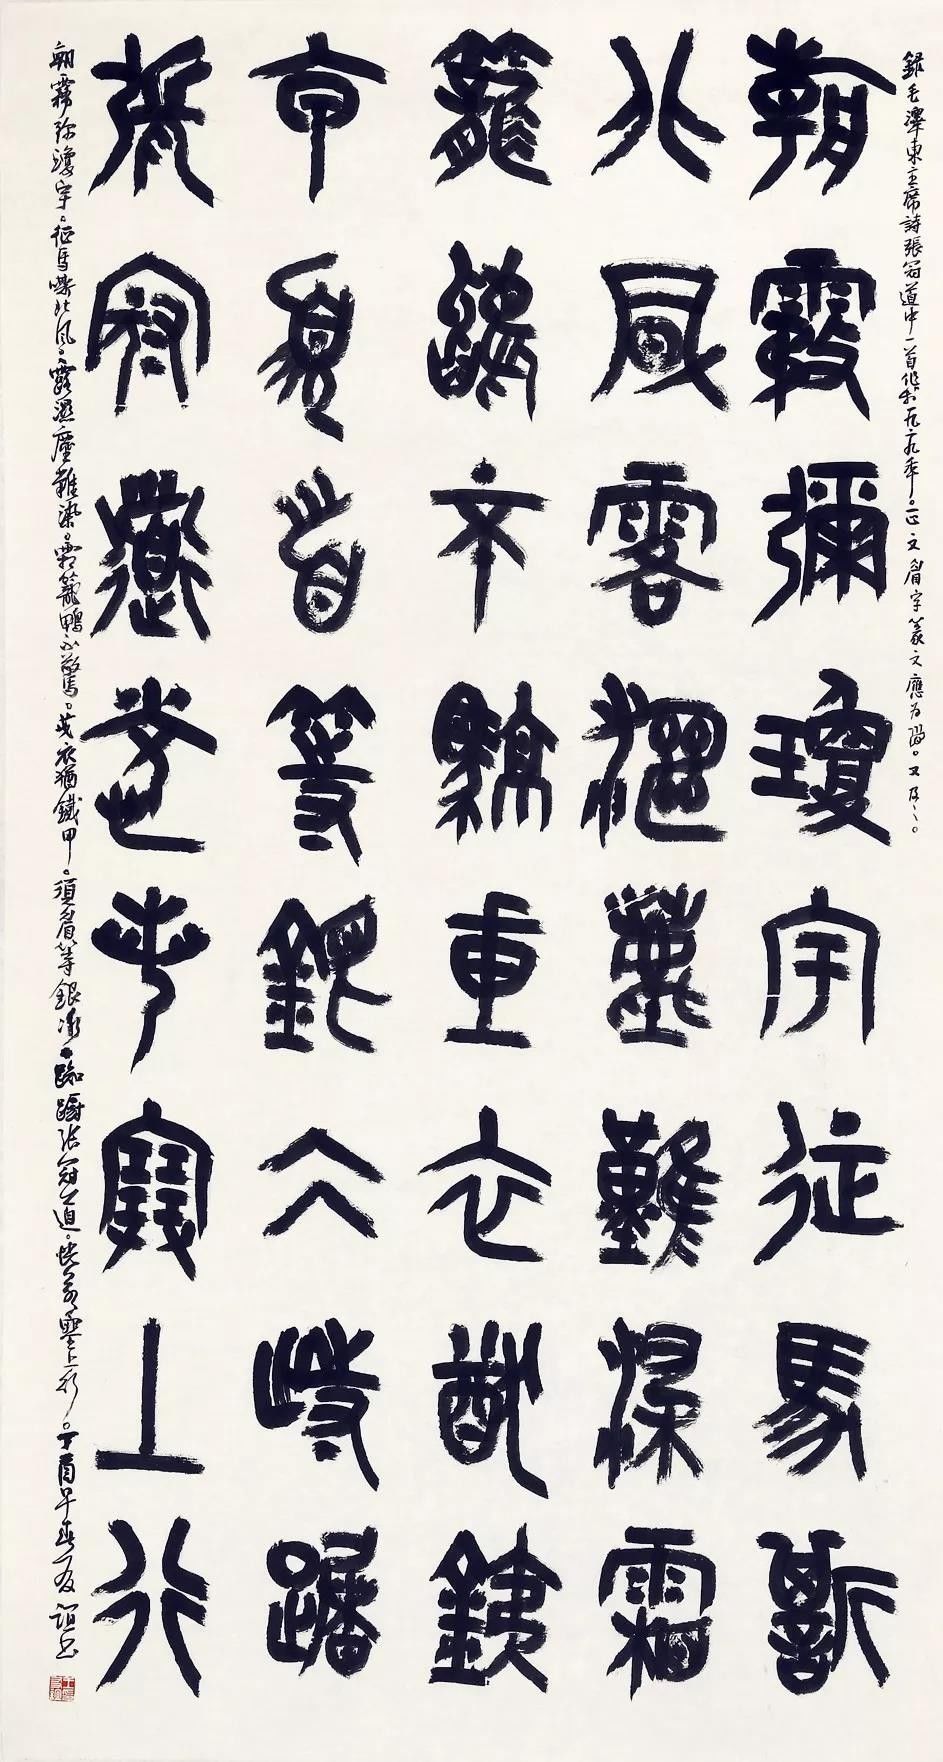 錄毛澤東主席詩張冠道中一首作於年。正文眉字篆文應為。又及
朝霧彌瓊宇征馬嘶
北風露濕塵難染霜
籠鴉不驚戎衣猶鐵
甲須眉等銀冰踟躕
張冠道恍若塞上行
朝霧弥瓊宇。征馬嘶北風。露濕塵難染。霜籠鴉不驚。戎衣猶鐵甲。須眉等銀冰。踟躕張冠道。恍若塞上行。丁酉早春友誼书